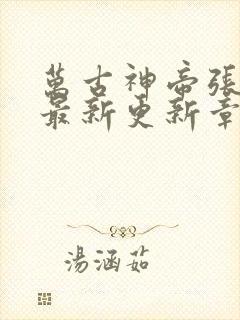 萬古神帝張
最新更新章
湯涵茹